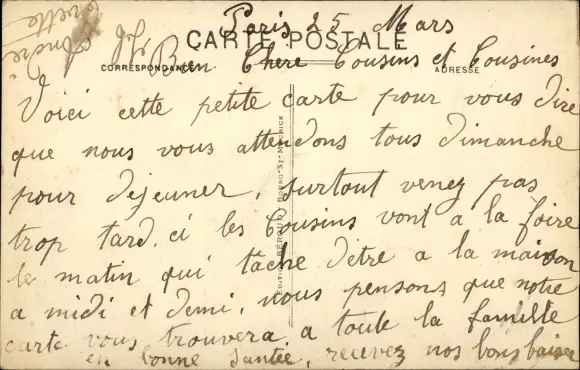 Paris 25 Mars
CARTE POSTALE
CORRESPONDANCE
ADRESSE
Bien Chere Cousins et Cousines
Voici cette petite carte pour vous dire
que nous vous attendons tous dimanche
pour dejeuner, surtout venez pas
trop tard. ci les Cousins vont a la foire
le matin qui tâche d'être a la maison
a midi et demi, nous pensons que notre
carte vous trouvera a toute la famille
en bonne Santée, recevez nos bons baiser
André
EDITION BÉROUD, BOURG-ST-MAURICE